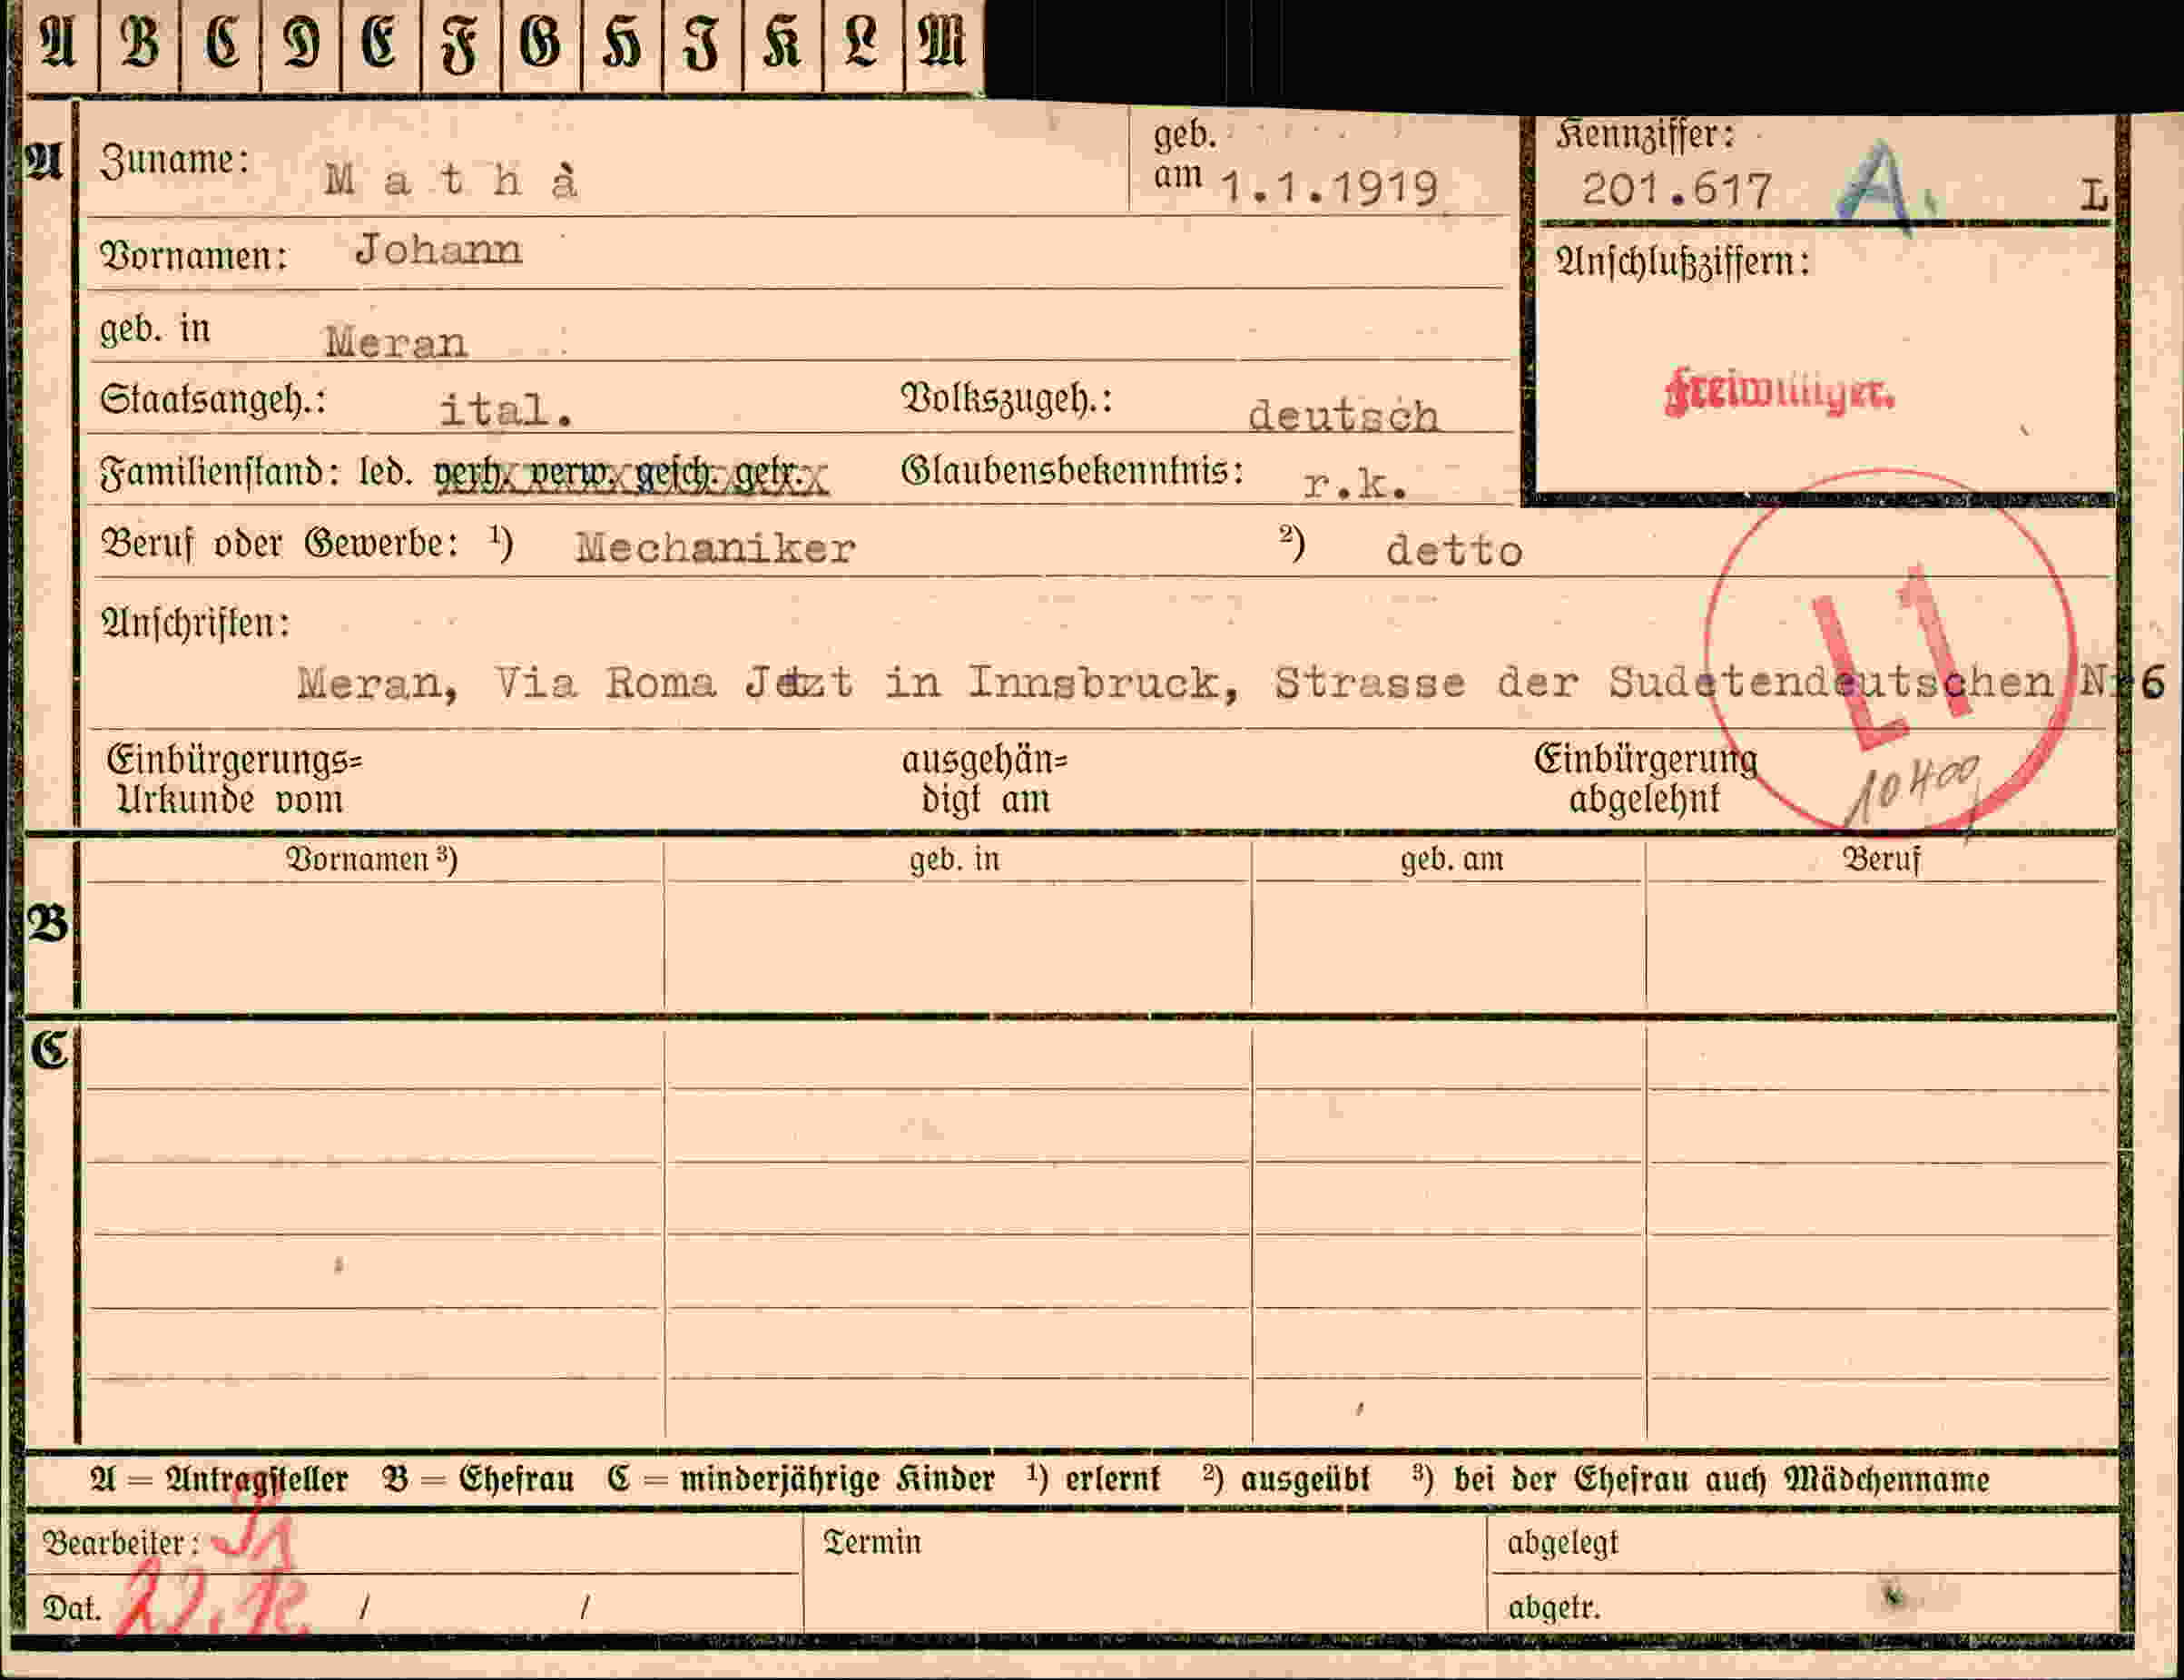 A B C D E F G H J K L M
A Zuname: Mathà geb. am 1.1.1919 Kennziffer: 201.617 A. L
Vornamen: Johann Anschlußziffern:
geb. in Meran
Freiwilliger.
Staatsangeh.: ital. Volkszugeh.: deutsch
Familienstand: led. verh. verw. gesch. getr. Glaubensbekenntnis: r.k.
Beruf oder Gewerbe: ¹) Mechaniker ²) detto
Anschriften:
L1
Meran, Via Roma Jetzt in Innsbruck, Strasse der Sudetendeutschen Nr 6
Einbürgerungs= ausgehän= Einbürgerung
Urkunde vom digt am abgelehnt 10400
Vornamen ³) geb. in geb. am Beruf
B
C
A = Antragsteller B = Ehefrau C = minderjährige Kinder ¹) erlernt ²) ausgeübt ³) bei der Ehefrau auch Mädchenname
Bearbeiter: Termin abgelegt
Dat. / / abgetr.